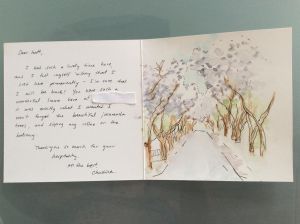 Dear Scott,
I had such a lovely time here,
and I felt myself wishing that I
could live permanently - I'm sure that
I will be back! You have such a
wonderful home here at
it was exactly what I needed. I
won't forget the beautiful jacaranda
trees, and sipping my coffee on the
balcony.
Thank you so much for your
hospitality.
All the best,